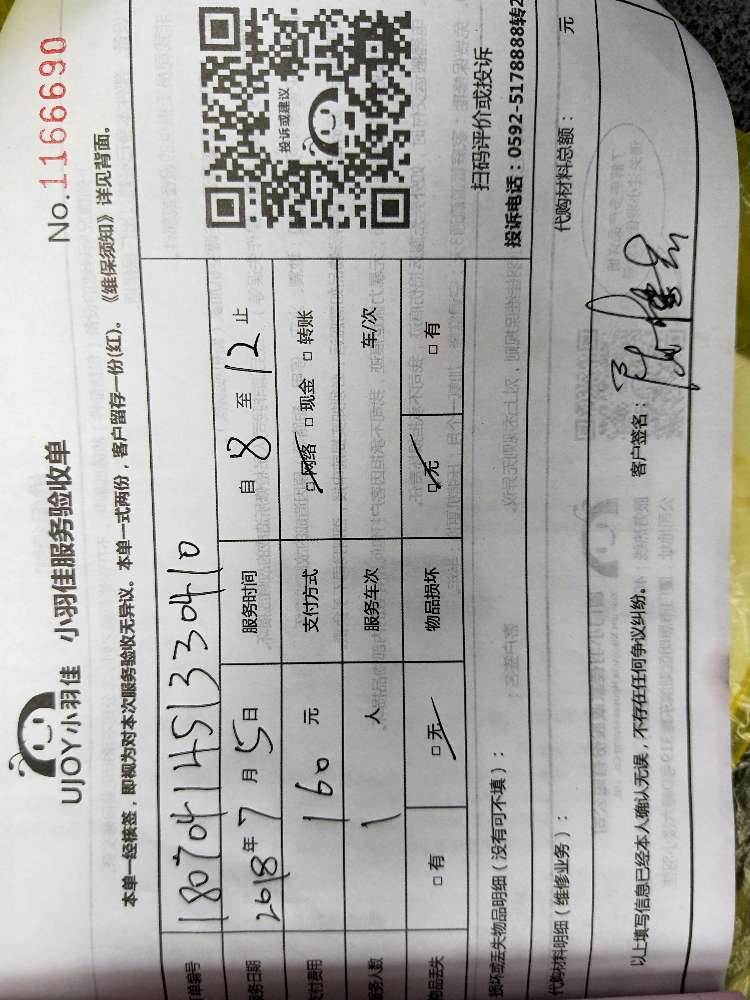 UJOY小羽佳 小羽佳服务验收单 No.1166690
本单一经核签，即视为对本次服务验收无异议。本单一式两份，客户留存一份(红)。《维保须知》详见背面。
单编号 1807041451330410
务日期 2018年7月5日 服务时间 自 8 至 12 止
付费用 160 元 支付方式 □网络 □现金 □转账
务人数 1 人 服务车次 车/次
物品丢失 □有 □无 物品损坏 □无 □有
投诉或建议
扫码评价或投诉
损坏或丢失物品明细（没有可不填）： 投诉电话：0592-5178888转2
代购材料明细（维修业务）： 代购材料总额： 元
以上填写信息已经本人确认无误，不存在任何争议纠纷。 客户签名：